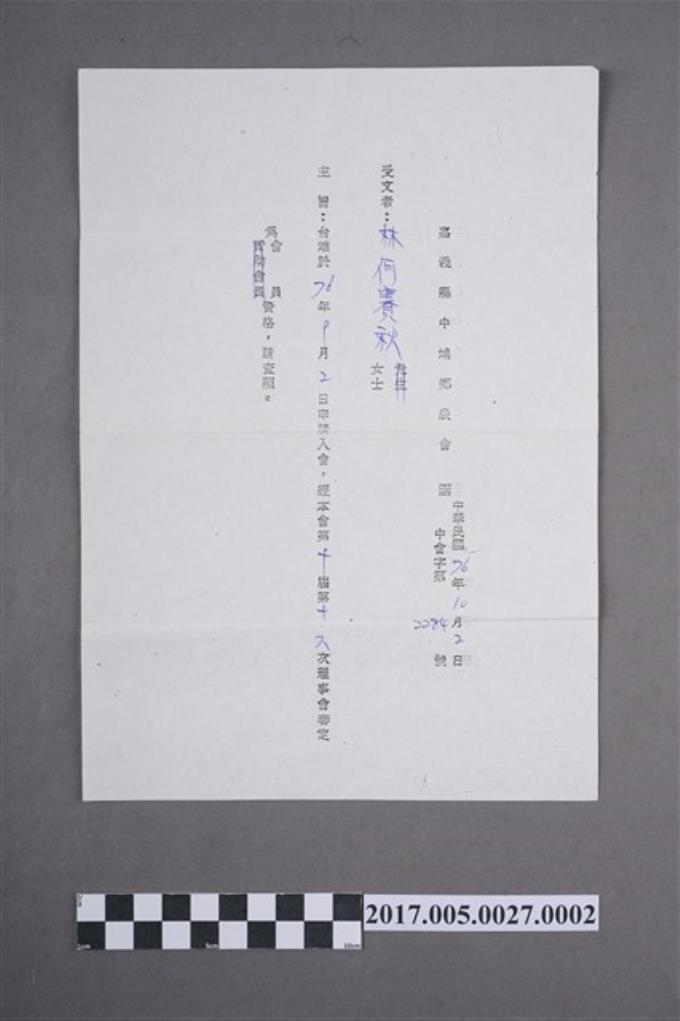 嘉義縣中埔鄉農會 函
中華民國76年10月2日
中會字第2284號
受文者：林何賽秋 先生 女士
主旨：台端於76年9月2日申請入會，經本會第十屆第十六次理事會審定
為會員
贊助會員資格，請查照。
2017.005.0027.0002